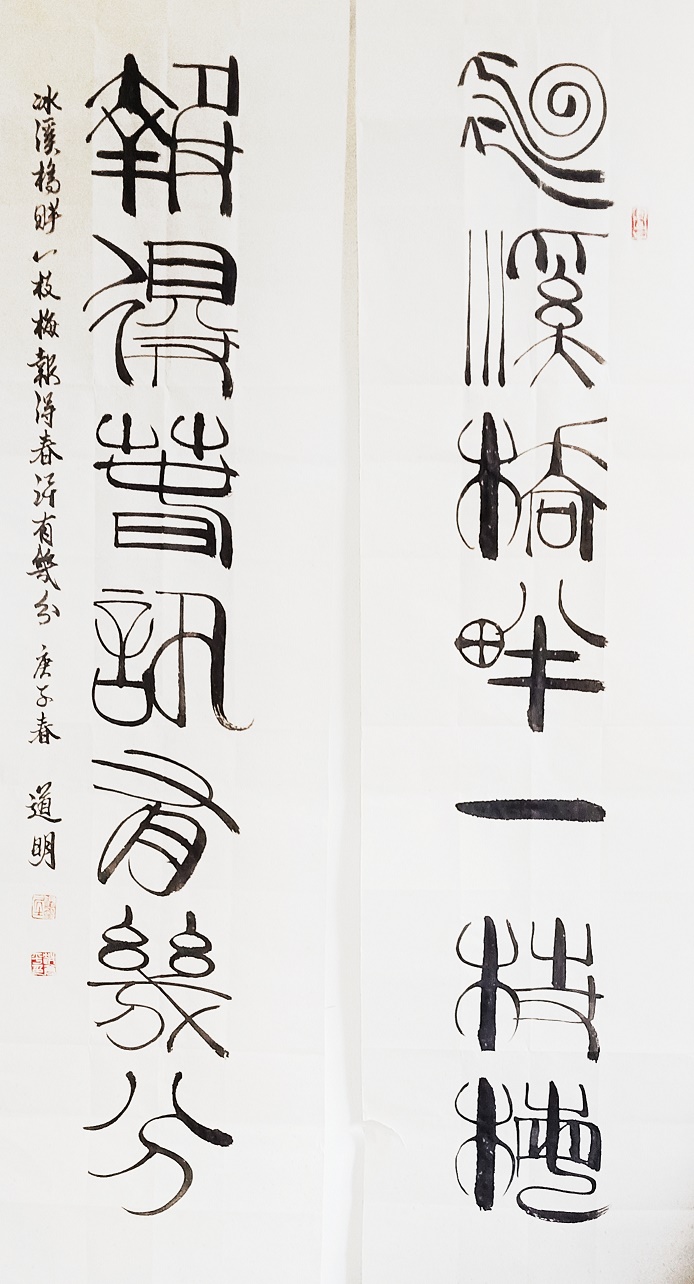 迴溪橋畔一枝梅
報得春訊有幾分
冰溪橋畔一枝梅報得春訊有幾分 庚子春 道明